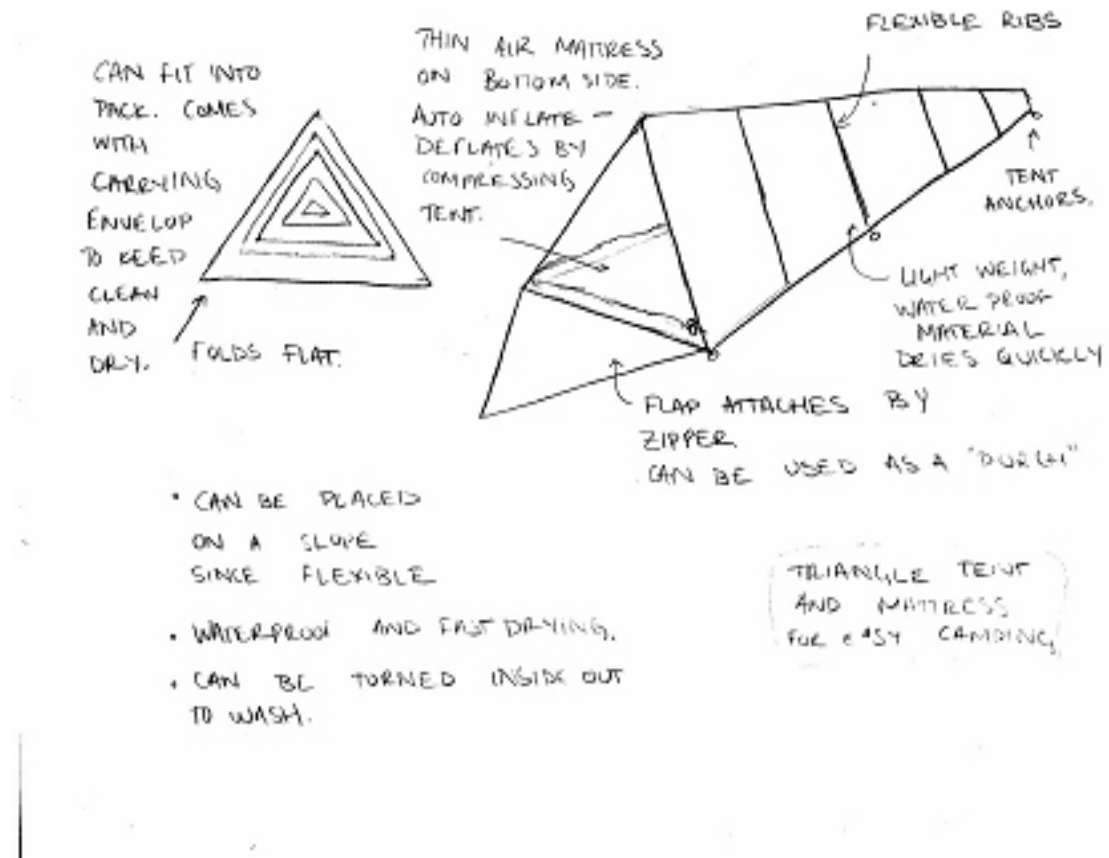 CAN FIT INTO
PACK. COMES
WITH
CARRYING
ENVELOP
TO KEED
CLEAN
AND
DRY.
FOLDS FLAT.
THIN AIR MATTRESS
ON BOTTOM SIDE.
AUTO INFLATE -
DEFLATES BY
COMPRESSING
TENT.
FLEXIBLE RIBS
TENT
ANCHORS.
LIGHT WEIGHT,
WATER PROOF
MATERIAL
DRIES QUICKLY
FLAP ATTACHES BY
ZIPPER.
CAN BE USED AS A "PORCH"
• CAN BE PLACED
ON A SLOPE
SINCE FLEXIBLE
• WATERPROOF AND FAST DRYING.
• CAN BE TURNED INSIDE OUT
TO WASH.
TRIANGLE TENT
AND MATTRESS
FOR EASY CAMPING